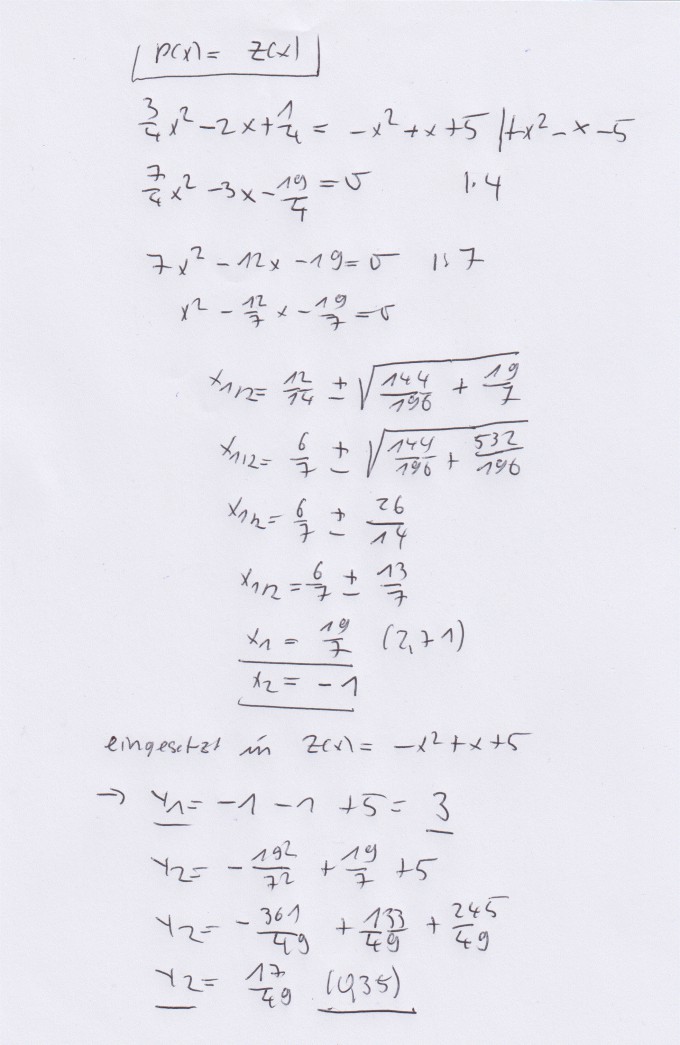 p(x) = z(x)
3/4 x² - 2x + 1/4 = -x² + x + 5 | +x² - x - 5
7/4 x² - 3x - 19/4 = 0 | · 4
7x² - 12x - 19 = 0 | : 7
x² - 12/7 x - 19/7 = 0
x1/2 = 12/14 ± √(144/196 + 19/7)
x1/2 = 6/7 ± √(144/196 + 532/196)
x1/2 = 6/7 ± 26/14
x1/2 = 6/7 ± 13/7
x1 = 19/7 (2,71)
x2 = -1
eingesetzt in z(x) = -x² + x + 5
→ y1 = -1 - 1 + 5 = 3
y2 = - 19²/7² + 19/7 + 5
y2 = - 361/49 + 133/49 + 245/49
y2 = 17/49 (0,35)